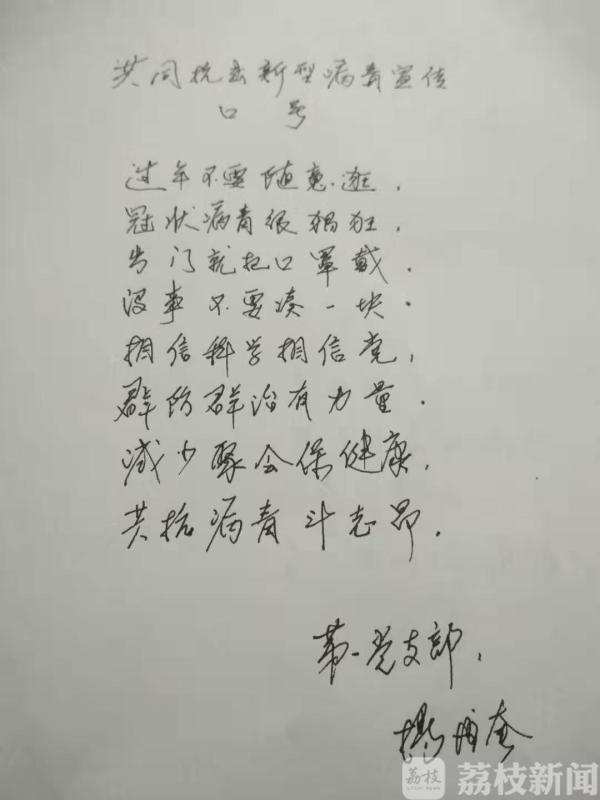 共同抗击新型病毒宣传
口号
过年不要随意逛，
冠状病毒很猖狂，
出门就把口罩戴，
没事不要凑一块。
相信科学相信党，
群防群治有力量。
减少聚会保健康，
共抗病毒斗志昂。
第一党支部，
荔枝 荔枝新闻